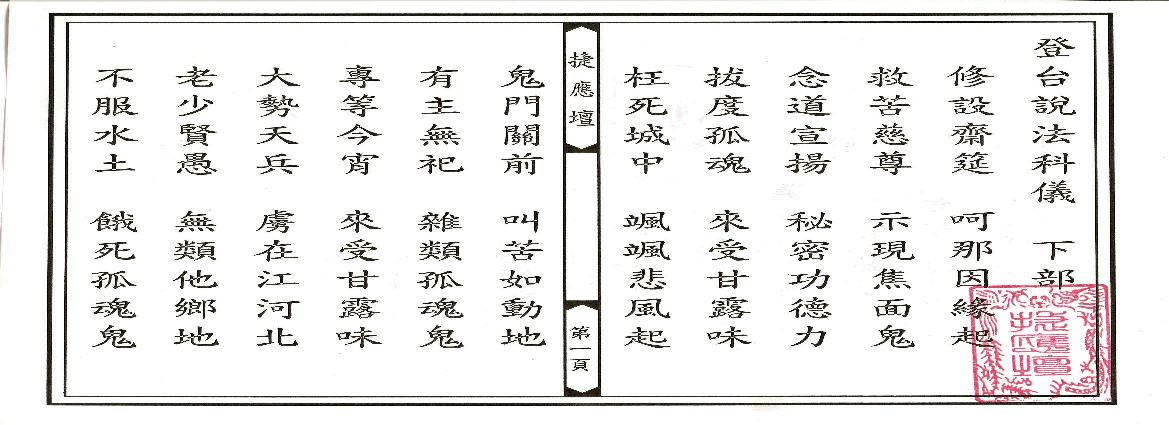 登台說法科儀 下部
修設齋筵 呵那因緣起
救苦慈尊 示現焦面鬼
念道宣揚 秘密功德力
拔度孤魂 來受甘露味
枉死城中 颯颯悲風起
捷應壇
第一頁
鬼門關前 叫苦如動地
有主無祀 雜類孤魂鬼
專等今宵 來受甘露味
大勢天兵 虜在江河北
老少賢愚 無類他鄉地
不服水土 餓死孤魂鬼